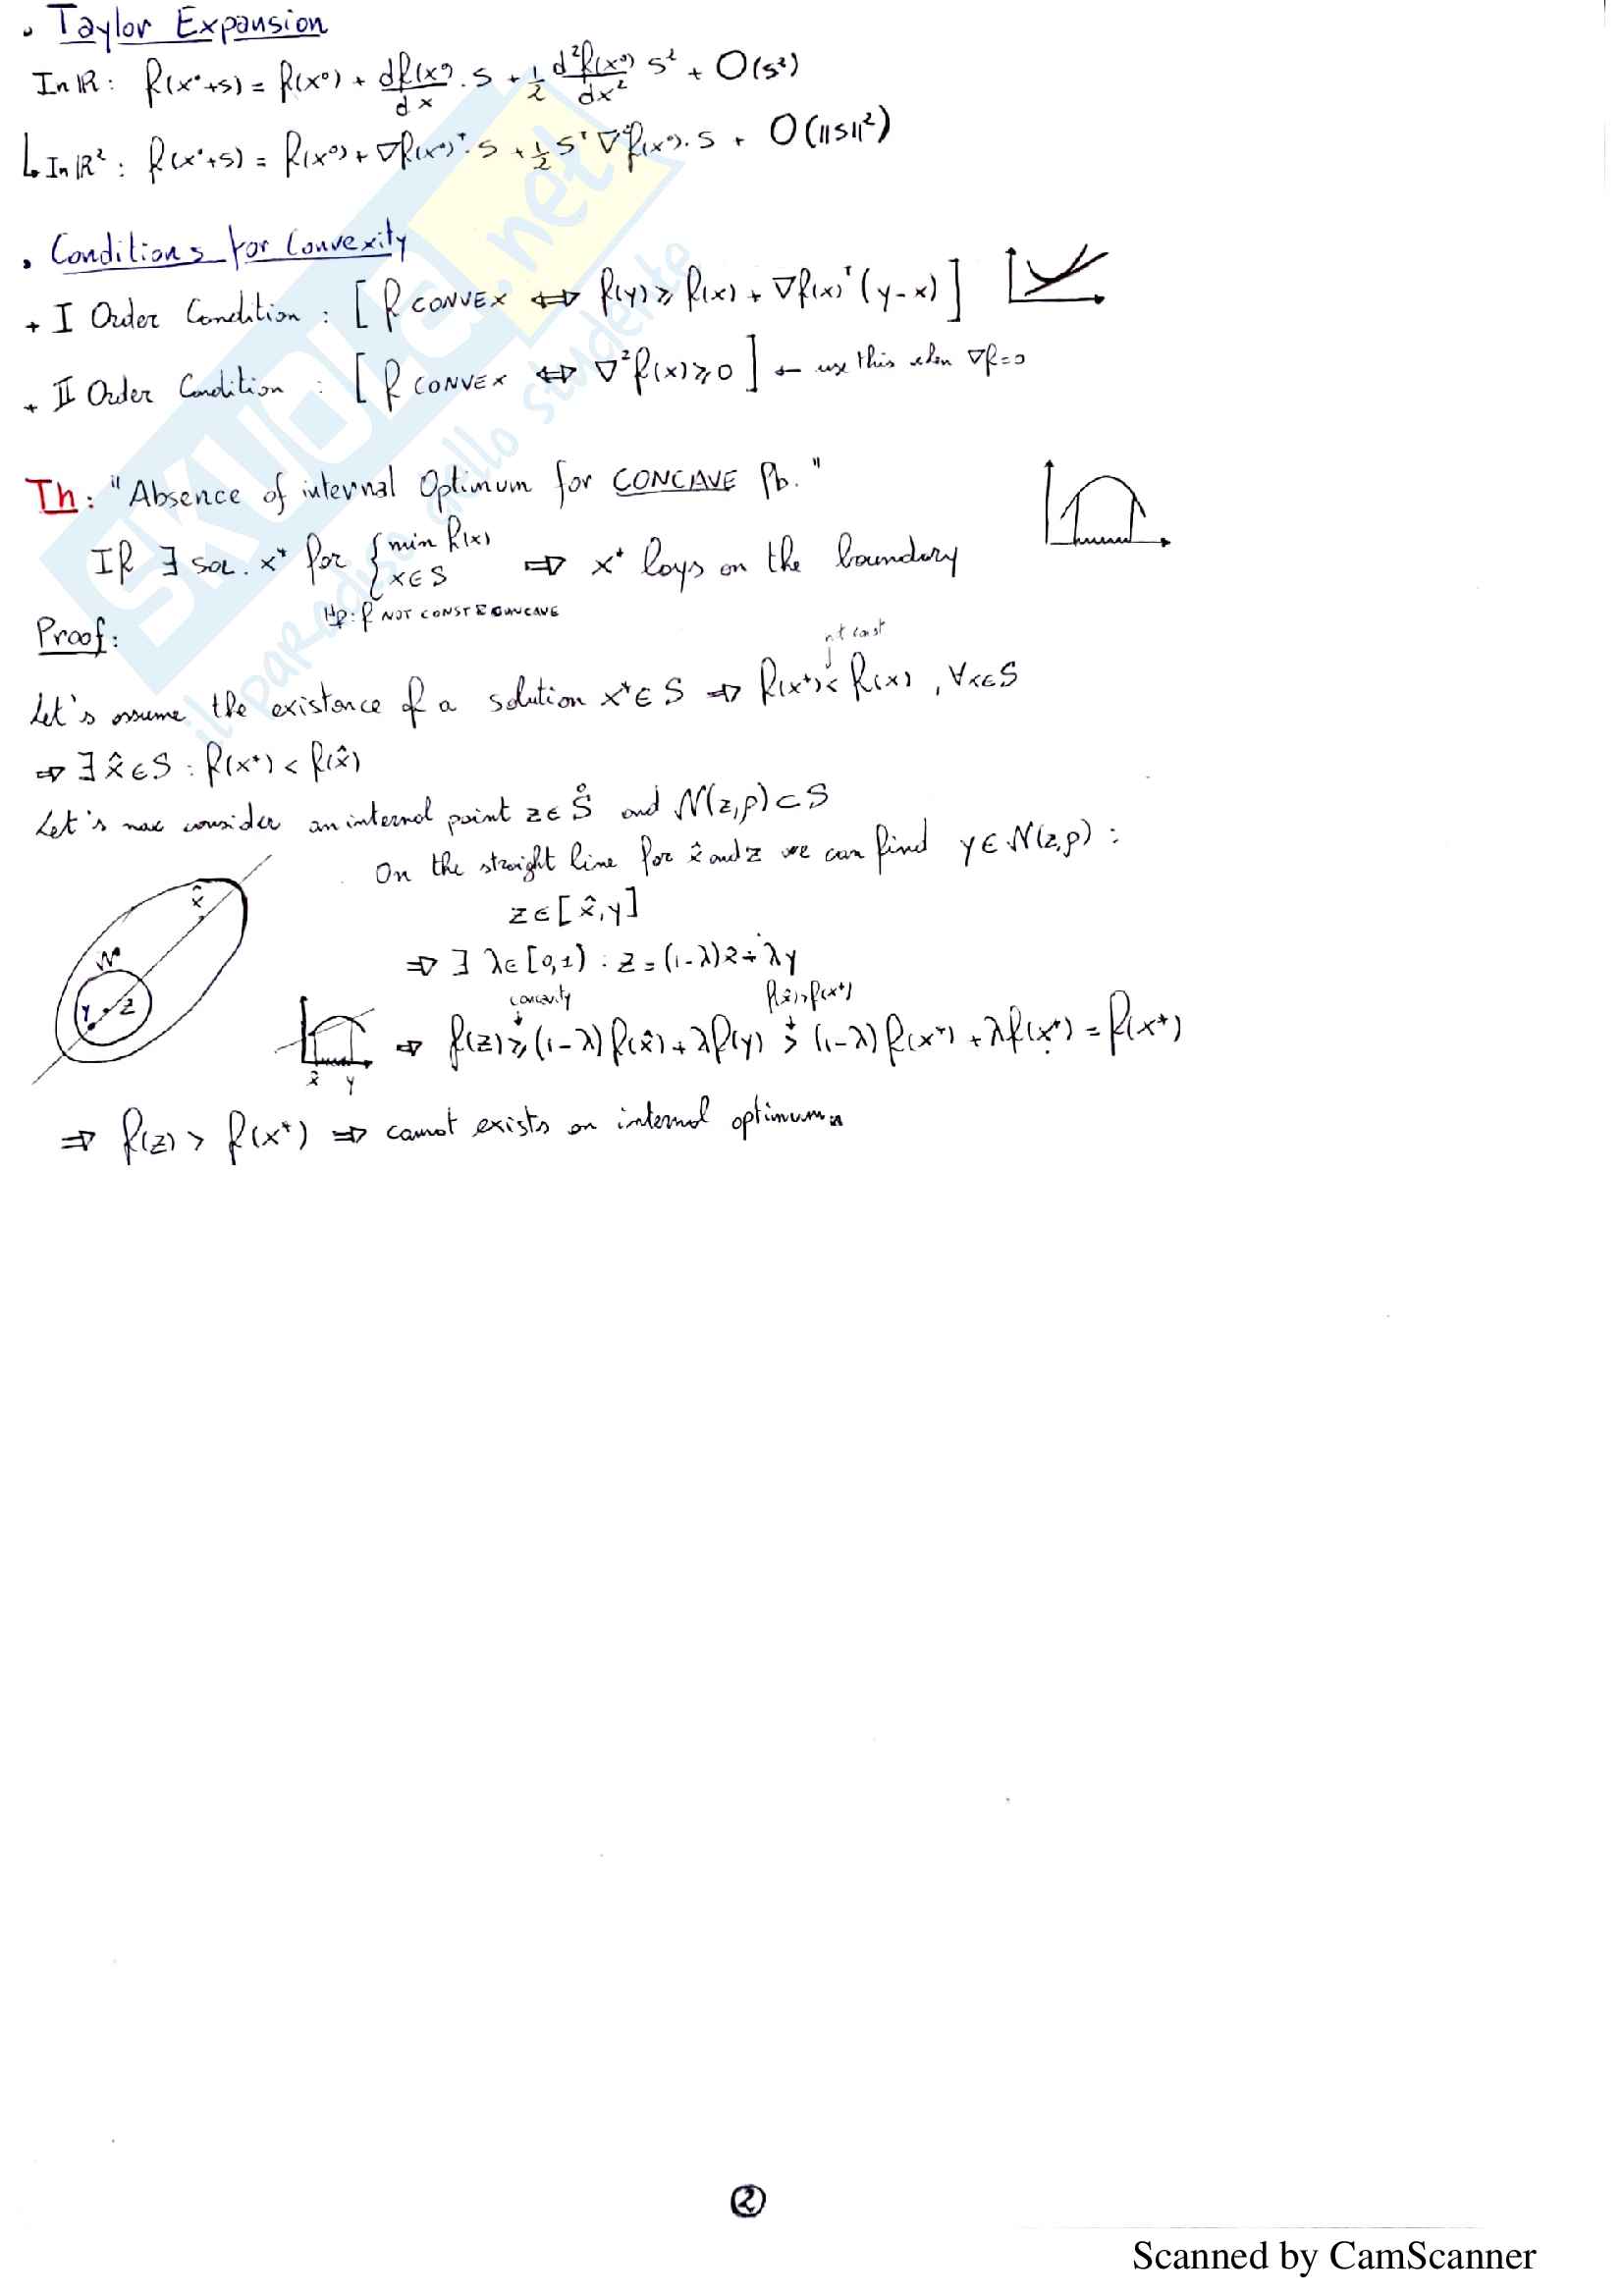 • Taylor Expansion
In ℝ: f(x°+s) = f(x°) + df(x°)/dx · s + 1/2 d²f(x°)/dx² s² + O(s²)
↳ In ℝ²: f(x°+s) = f(x°) + ∇f(x°)ᵀ·s + 1/2 sᵀ ∇²f(x°)·s + O(||s||²)
• Conditions for Convexity
+ I Order Condition : [f CONVEX ⇔ f(y) ≥ f(x) + ∇f(x)ᵀ(y-x)]
+ II Order Condition : [f CONVEX ⇔ ∇²f(x) ≥ 0] ← use this when ∇f=0
Th: "Absence of internal Optimum for CONCAVE Pb."
If ∃ sol. x* for { min f(x) x∈S ⇒ x* lays on the boundary
Hp: f NOT CONST & CONCAVE
Proof:
not const
Let's assume the existence of a solution x*∈S ⇒ f(x*) < f(x), ∀x∈S
⇒ ∃ x̂∈S : f(x*) < f(x̂)
Let's now consider an internal point z∈S̊ and N(z,ρ)⊂S
On the straight line for x̂ and z we can find y∈N(z,ρ) :
z∈[x̂,y]
⇒ ∃ λ∈[0,1) : z=(1-λ)x̂+λy
concavity f(x̂)>f(x*)
⇒ f(z) ≥ (1-λ)f(x̂)+λf(y) > (1-λ)f(x*)+λf(x*) = f(x*)
x̂
N
y z
x̂ y
⇒ f(z) > f(x*) ⇒ cannot exists an internal optimum
2
SKUOLA.net
il paradiso dello studente
Scanned by CamScanner